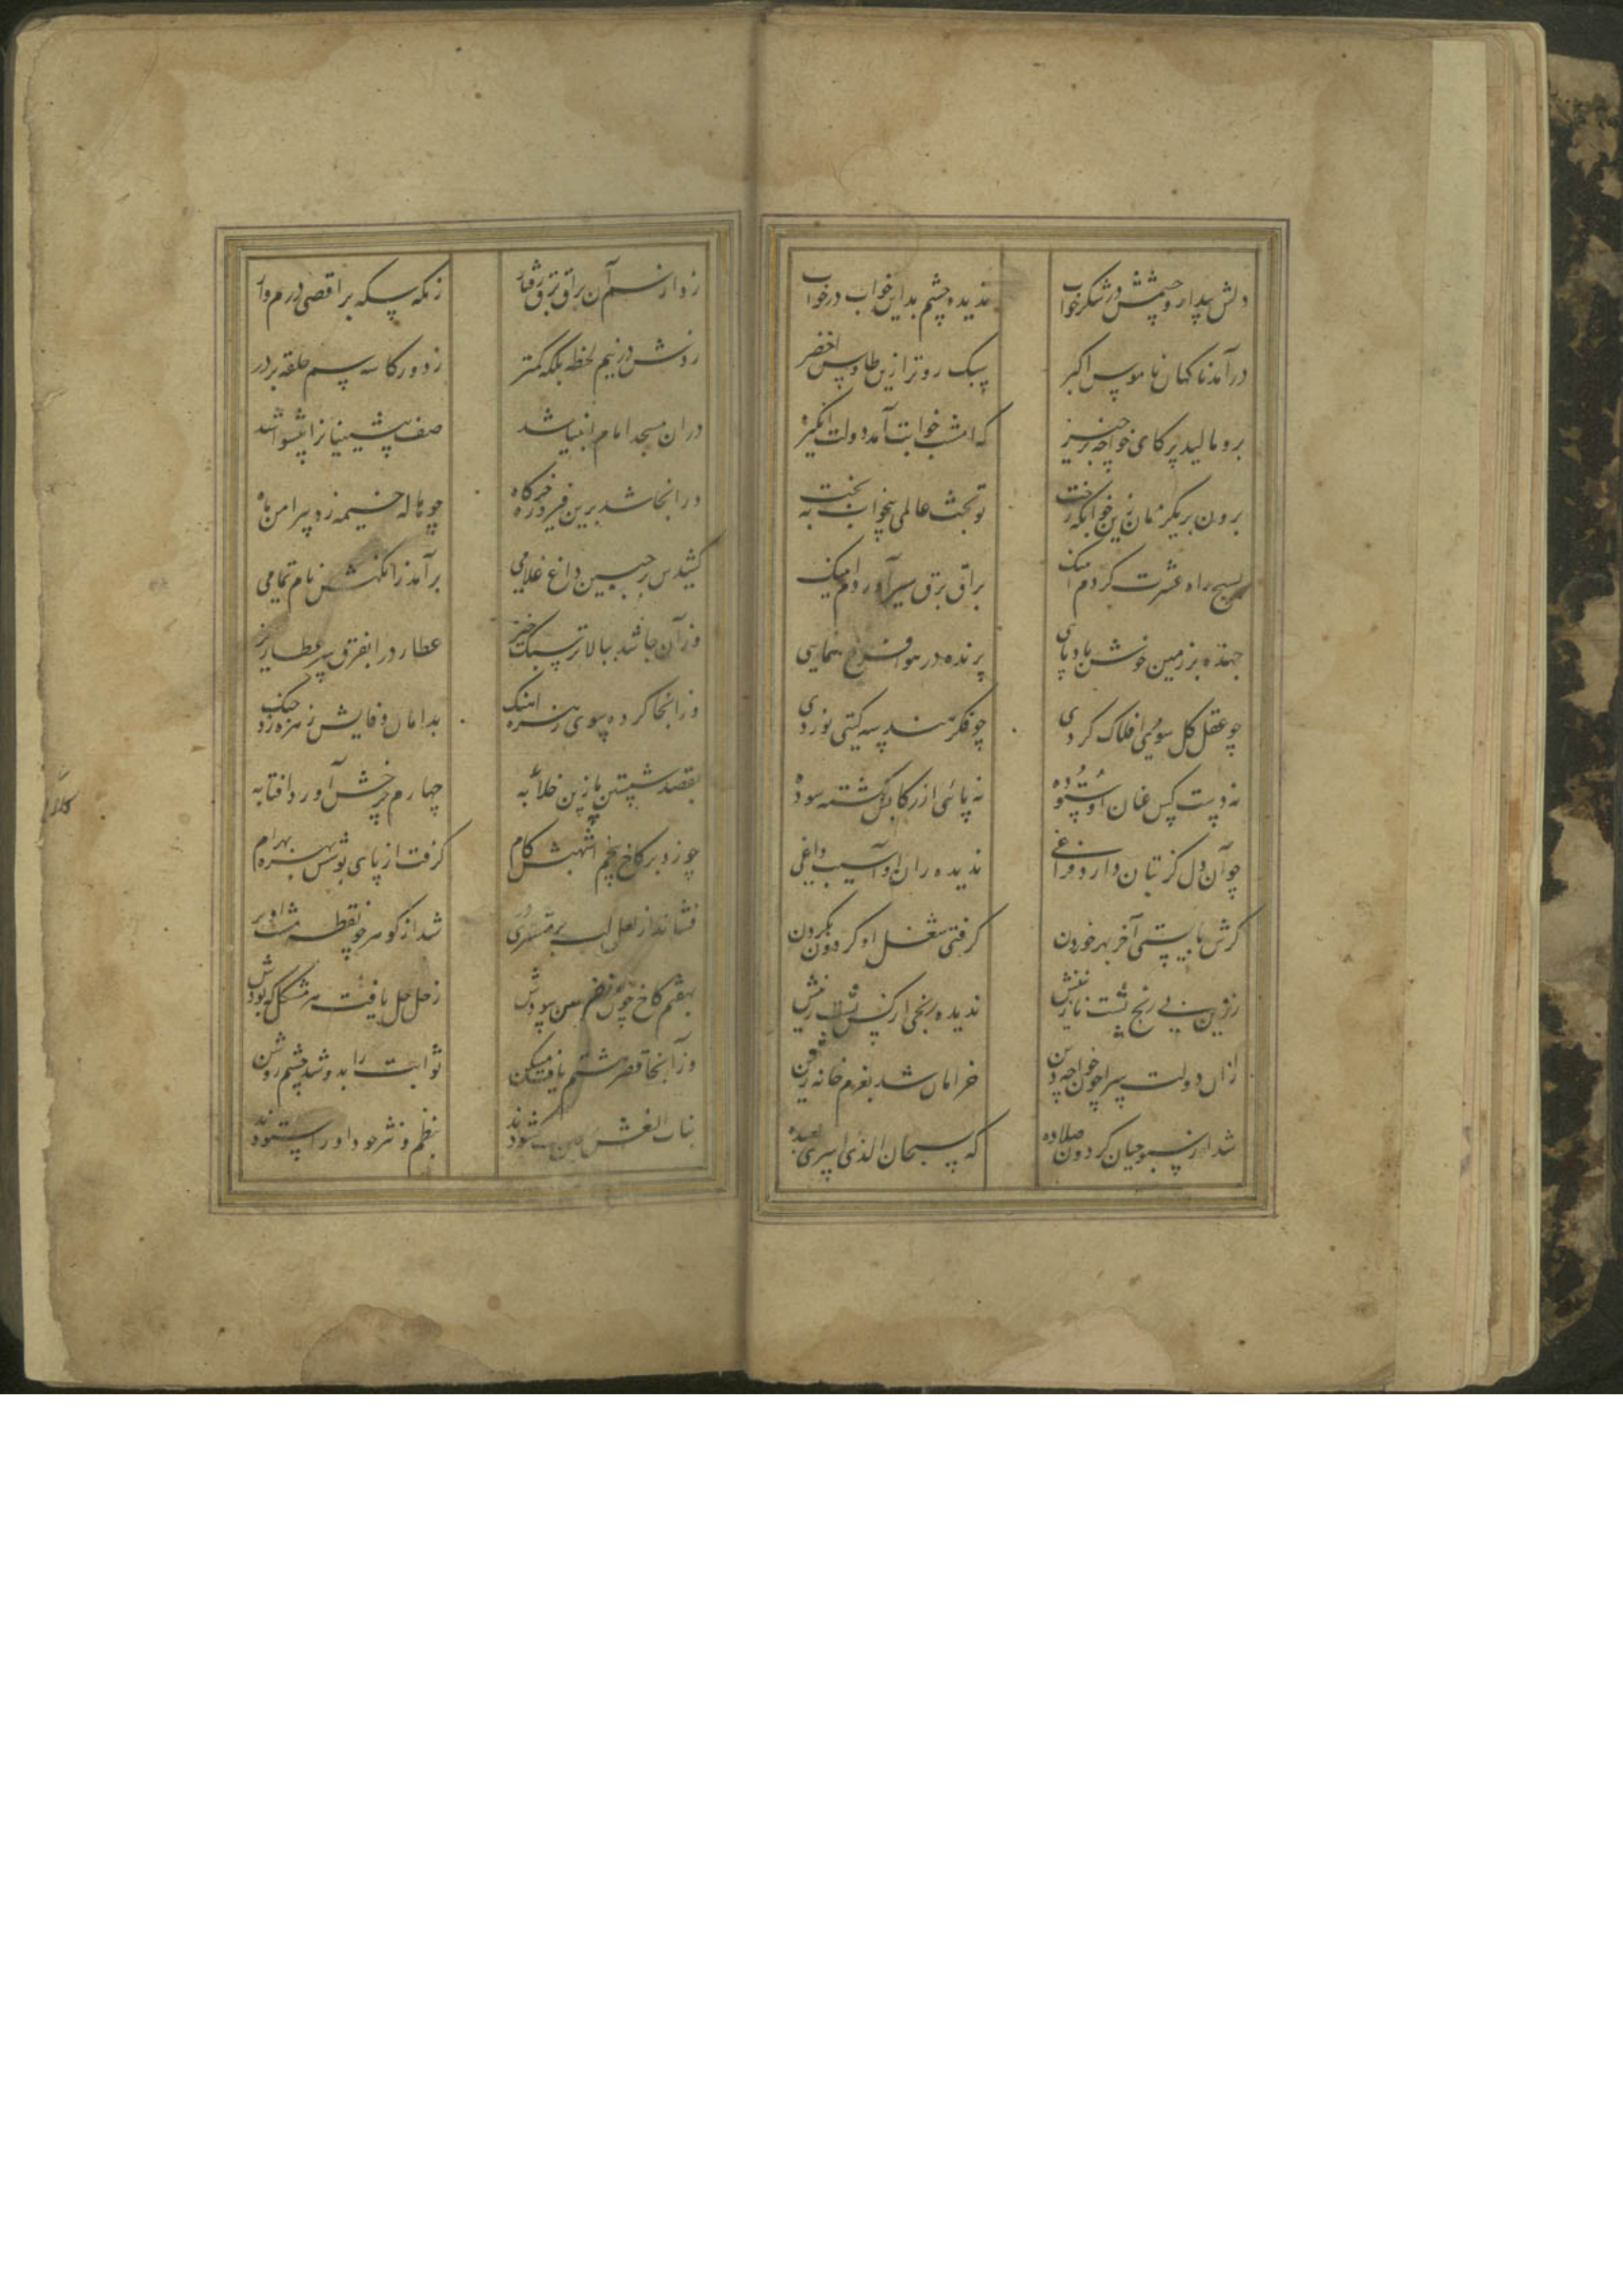 دلش بیدار و چشمش در شکر خواب ندیده چشم بد این خواب در خواب
درآمد ناکهان ناموس اکبر سبک رو تر ازین طاوس اخضر
برو مالید پر کای خواجه برخیز که امشب خوابت آمد دولت انگیز
برون بر یکزمان زین خوابکه رخت تو بخت عالمی بیخواب به بخت
بسیج راه عشرت کردم اینک براق برق سیر آوردم اینک
جهنده بر زمین خوش بادپایی پرنده در هوا فرخ همایی
چو عقل کل سوی افلاک کردی چو فکر هندسه کیتی نوردی
نه دست کس عنان او بسوده نه پائی از رکابش کشته سوده
چو آن دل کز بتان دارد فراغی ندیده ران او آسیب داغی
کرش بایستی آخر بهر خوردن کرفتی شغل او کردون بکردن
ززین بی رنج پشت نازنینش ندیده رنجی از کس پشت زینش
ازان دولت سرا چون خواجه دین خرامان شد بعزم خانه زین
شد از سبوحیان کردون صلا ده که سبحان الذی اسری بعبده
زد از سم آن براق برق رفتار زمکه سکه بر اقصی درم وار
زدش در نیم لحظه بلکه کمتر ز دور کاسه سم حلقه بر در
دران مسجد امام انبیا شد صف پیشینیانرا پیشوا شد
درانجا شد برین فیروزه خرکاه چو هاله خیمه زد پیرامن ماه
کشیدش بر جبین داغ غلامی برآمد زانکهش نام تمامی
وز آن جا شد ببالا تر سبک خیز عطارد را بفرق سر عطا ریز
وز انجا کرده سوی زهره آهنک بدامان وفایش زهره زد چنک
بقصد شستن پا زین خلابه چهارم چرخش آورد افتابه
چو زد بر کاخ پنجم اشهبش کام کرفت از پای بوسش بهره بهرام
فشاند از لعل لب بر مشتری در شد از کوهر چو نقطه مشت او پر
بهفتم کاخ چون نعلین سودش زحل حل یافت هر مشکل که بودش
وز آنجا قصر هشتم یافت مسکن ثوابت را بدو شد چشم روشن
بنات النعش بنظم و نثر خود او را ستودند